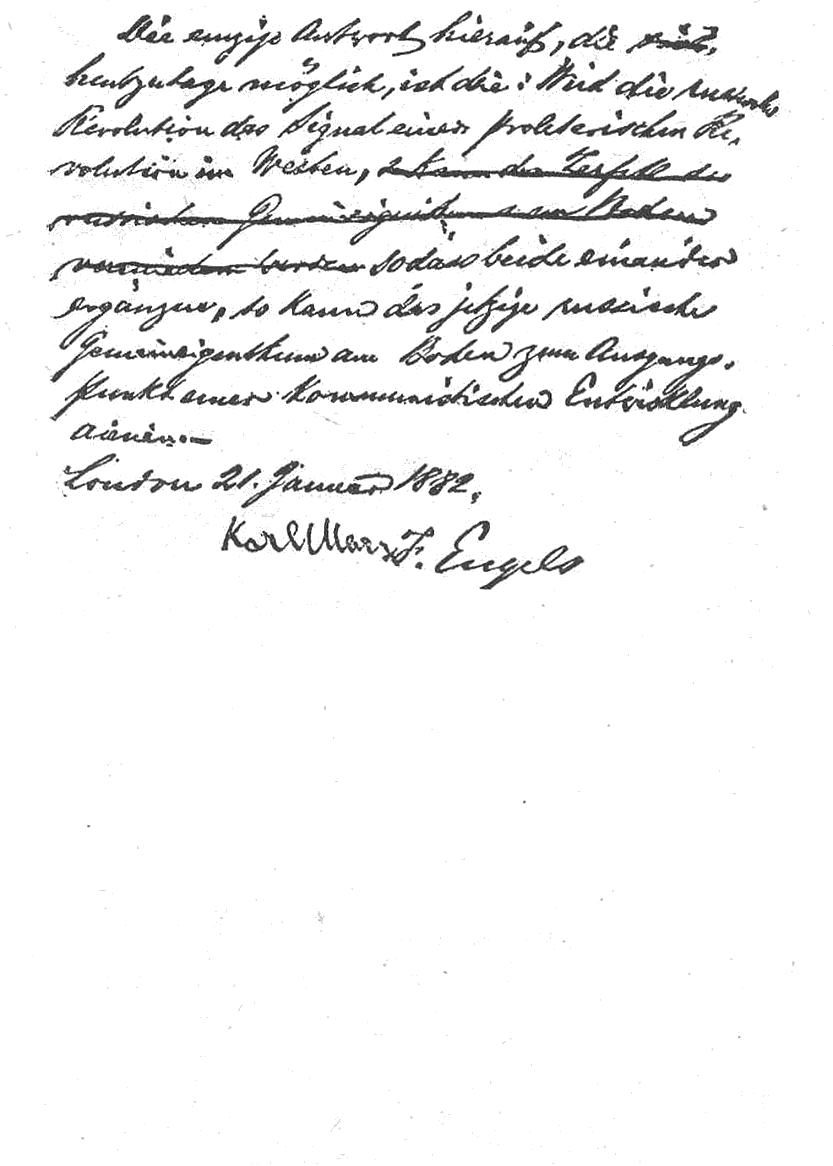 Die einzige Antwort hierauf, die
heutzutage möglich, ist die: Wird die russische
Revolution das Signal einer proletarischen Re-
volution im Westen, so kann der Zerfall des
russischen Gemeineigenthums am Boden
vermieden werden sodass beide einander
ergänzen, so kann das jetzige russische
Gemeineigenthum am Boden zum Ausgangs-
punkt einer kommunistischen Entwicklung
dienen.—
London 21. Januar 1882.
Karl Marx F. Engels